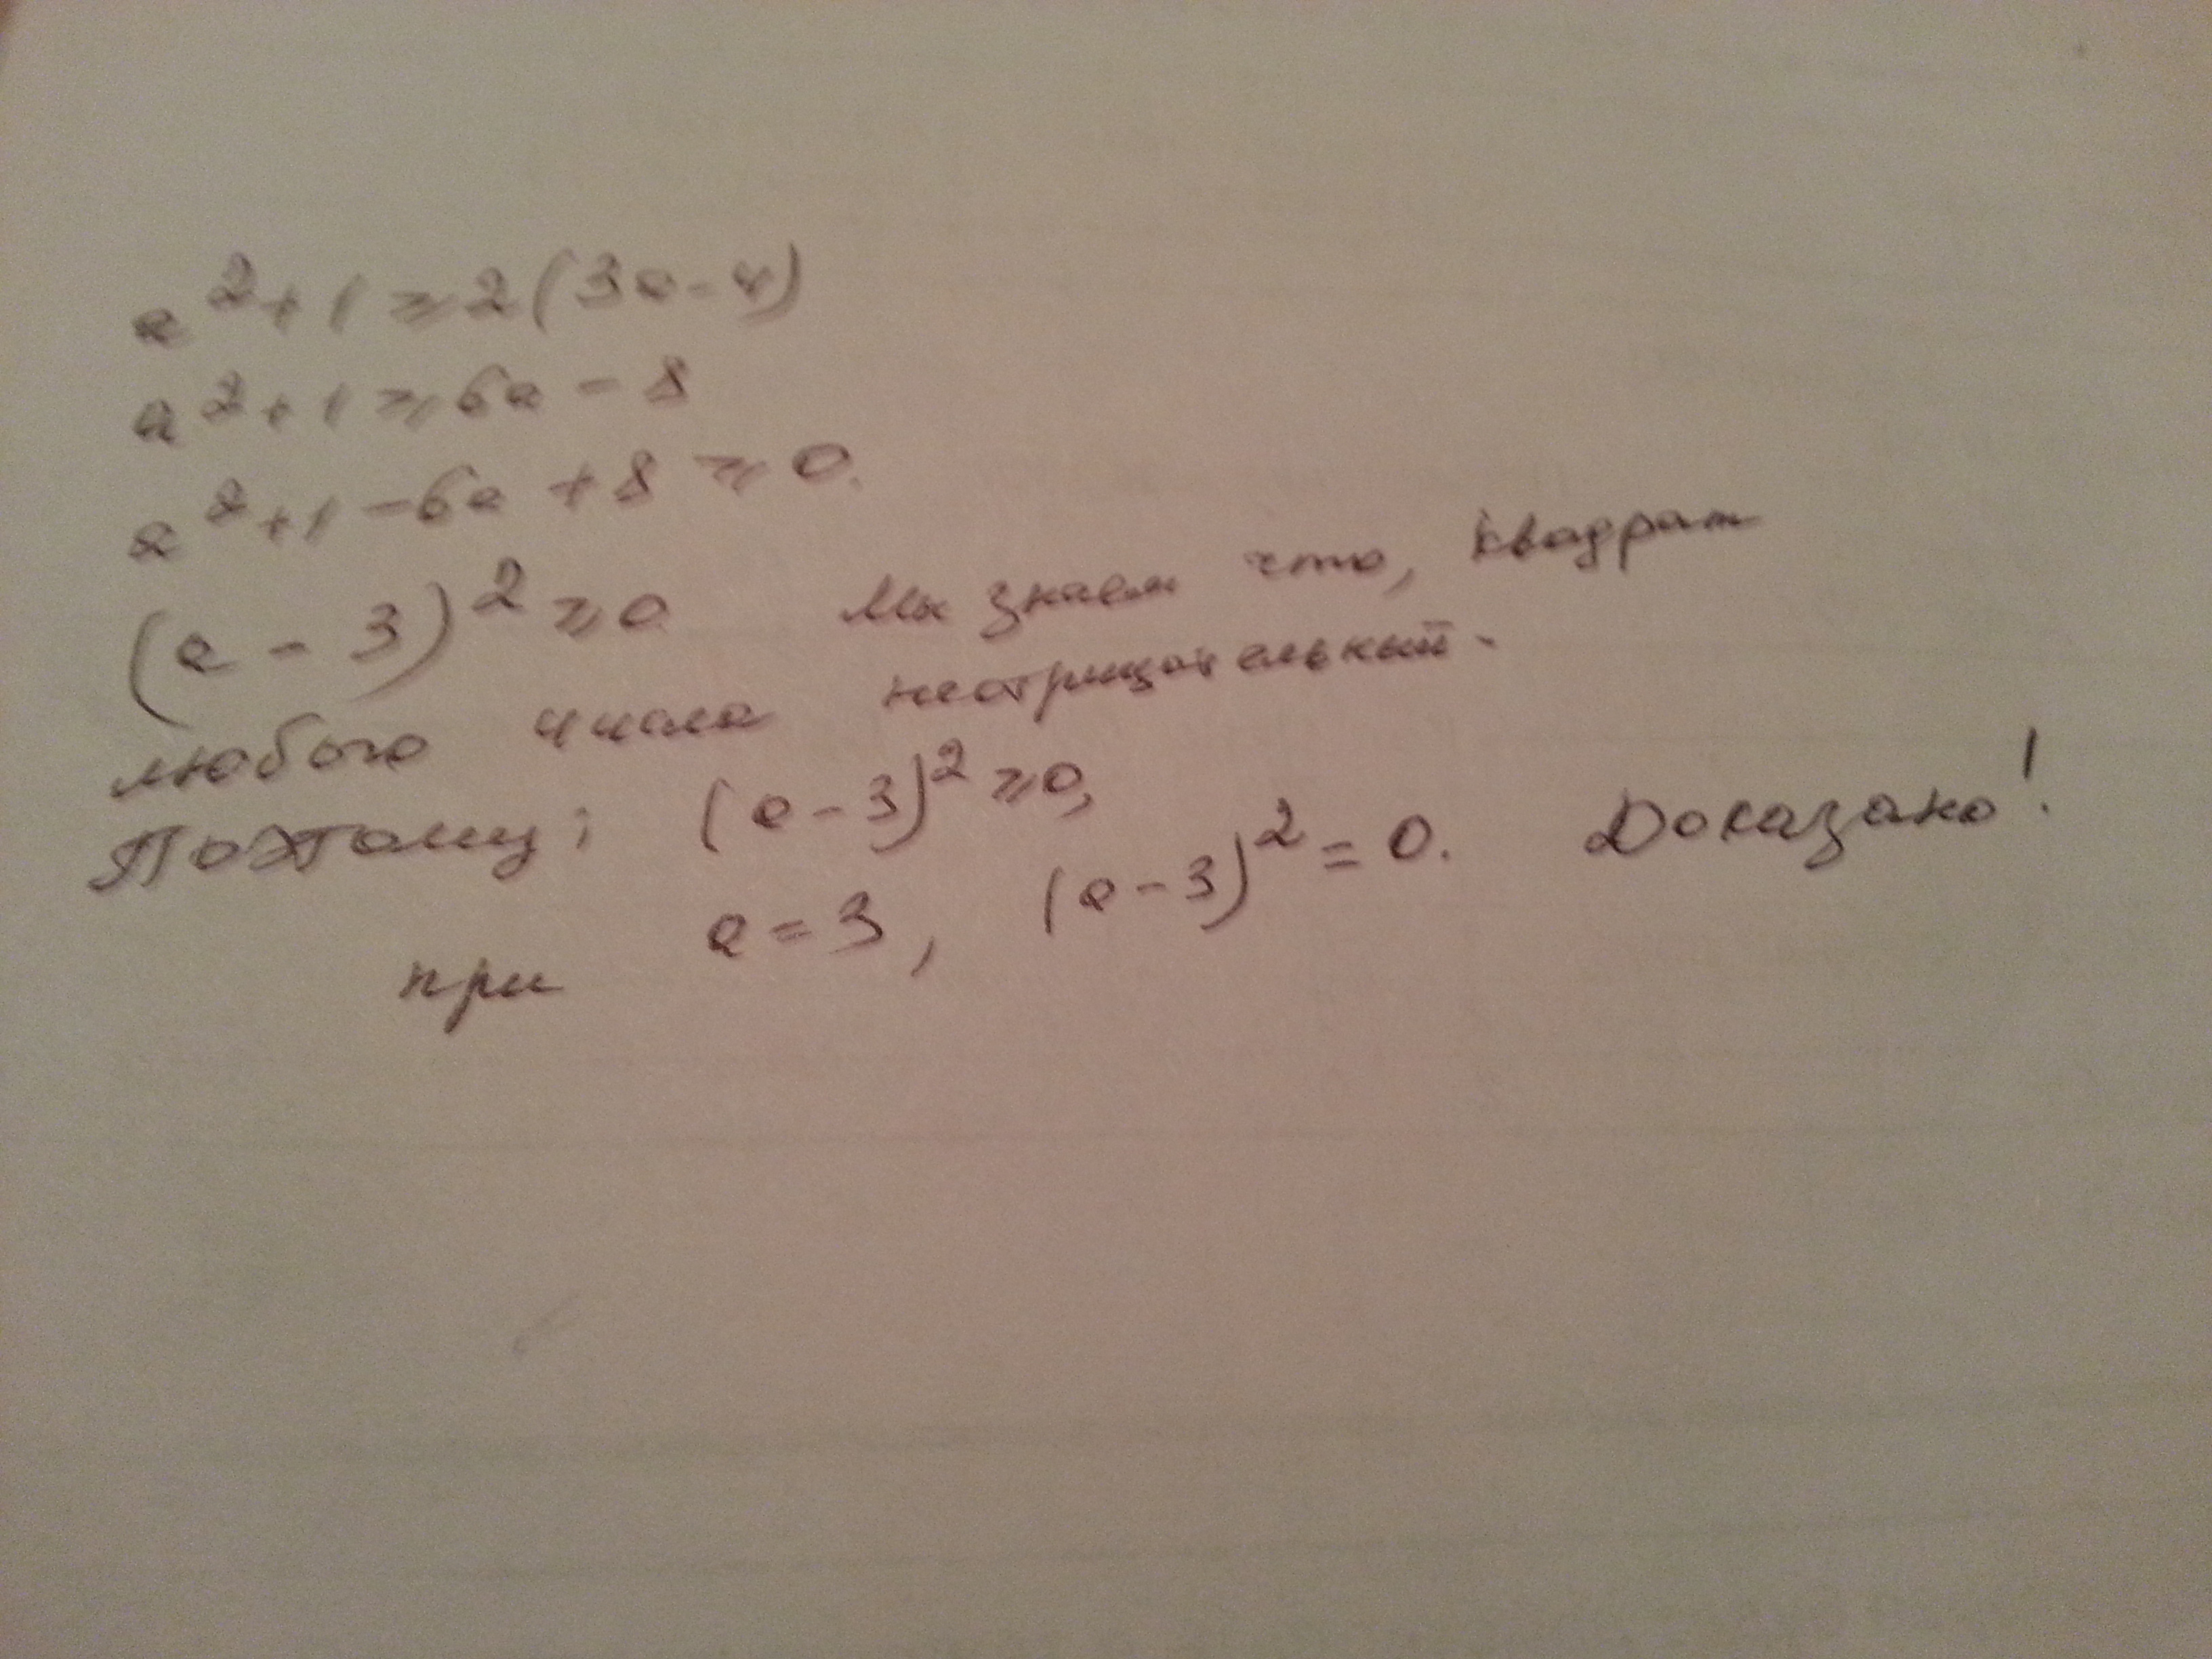 a² + 1 ⩾ 2(3a - 4)
a² + 1 ⩾ 6a - 8
a² + 1 - 6a + 8 ⩾ 0.
(a - 3)² ⩾ 0 Мы знаем что, квадрат
любого числа неотрицательный.
Поэтому; (a - 3)² ⩾ 0,
при a = 3, (a - 3)² = 0. Доказано!